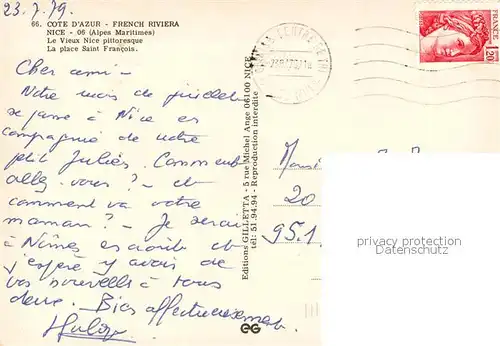 23.7.79.
66. COTE D'AZUR - FRENCH RIVIERA
NICE - 06 (Alpes Maritimes)
Le Vieux Nice pittoresque
La place Saint François.
Cher ami -
Notre mois de juillet
se passe à Nice en
compagnie de notre
petit Julien. Comment
allez-vous? - et
comment va votre
maman? - Je serai
à Nîmes en août et
j'espère y avoir de
vos nouvelles à tous
deux. Bien affectueusement
Editions GILLETTA - 5 rue Michel Ange 06100 NICE
tél: 51.94.94 - Reproduction interdite
EG
FRANCE
1,20
Monsi
20
951
privacy protection
Datenschutz